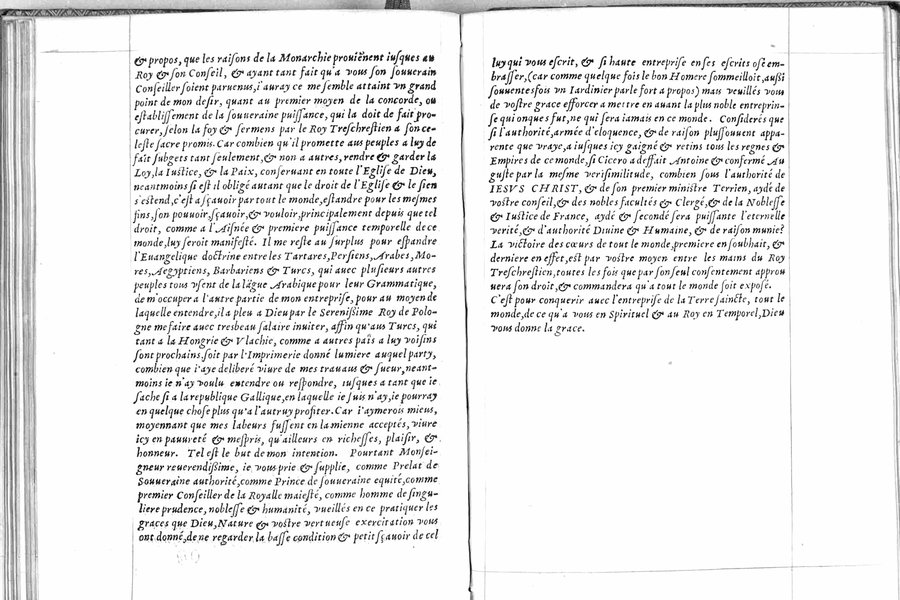 & propos, que les raisons de la Monarchie prouiēnent iusques au
Roy & son Conseil, & ayant tant fait qu'a vous son souuerain
Conseiller soient paruenus, i'auray ce me semble attaint vn grand
point de mon desir, quant au premier moyen de la concorde, ou
establissement de la souueraine puissance, qui la doit de fait pro-
curer, selon la foy & sermens par le Roy Treschrestien a son ce-
leste sacre promis. Car combien qu'il promette aus peuples a luy de
fait subgets tant seulement, & non a autres, rendre & garder la
Loy, la Iustice, & la Paix, conseruant en toute l'Eglise de Dieu,
neantmoins si est il obligé autant que le droit de l'Eglise & le sien
s'estend, c'est a sçauoir par tout le monde, estandre pour les mesmes
fins, son pouuoir, sçauoir, & vouloir, principalement depuis que tel
droit, comme a l'Aisnée & premiere puissance temporelle de ce
monde, luy seroit manifesté. Il me reste au surplus pour espandre
l'Euangelique doctrine entre les Tartares, Persiens, Arabes, Mo-
res, Aegyptiens, Barbariens & Turcs, qui auec plusieurs autres
peuples tous vsent de la lāgue Arabique pour leur Grammatique,
de m'occuper a l'autre partie de mon entreprise, pour au moyen de
laquelle entendre, il a pleu a Dieu par le Serenissime Roy de Polo-
gne me faire auec tresbeau salaire inuiter, affin qu'aus Turcs, qui
tant a la Hongrie & Vlachie, comme a autres païs a luy voisins
sont prochains, soit par l'Imprimerie donné lumiere auquel party,
combien que i'aye deliberé viure de mes trauaus & sueur, neant-
moins ie n'ay voulu entendre ou respondre, iusques a tant que ie
sache si a la republique Gallique, en laquelle ie suis n'ay, ie pourray
en quelque chose plus qu'a l'autruy profiter. Car i'aymerois mieus,
moyennant que mes labeurs fussent en la mienne acceptés, viure
icy en pauureté & mespris, qu'ailleurs en richesses, plaisir, &
honneur. Tel est le but de mon intention. Pourtant Monsei-
gneur reuerendissime, ie vous prie & supplie, comme Prelat de
Souueraine authorité, comme Prince de souueraine equité, comme
premier Conseiller de la Royalle maiesté, comme homme de singu-
liere prudence, noblesse & humanité, vueillés en ce pratiquer les
graces que Dieu, Nature & vostre vertueuse exercitation vous
ont donné, de ne regarder la basse condition & petit sçauoir de cel
luy qui vous escrit, & si haute entreprise en ses escrits osé em-
brasser, (car comme quelque fois le bon Homere sommeilloit, aussi
souuentesfois vn Iardinier parle fort a propos) mais veuillés vous
de vostre grace efforcer a mettre en auant la plus noble entreprin-
se qui onques fut, ne qui sera iamais en ce monde. Considerés que
si l'authorité, armée d'eloquence, & de raison plus souuent appa-
rente que vraye, a iusques icy gaigné & retins tous les regnes &
Empires de ce monde, si Cicero a deffait Antoine & confermé Au
guste par la mesme verisimilitude, combien sous l'authorité de
IESVS CHRIST, & de son premier ministre Terrien, aydé de
vostre conseil, & des nobles facultés & Clergé, & de la Noblesse
& Iustice de France, aydé & secondé sera puissante l'eternelle
verité, & d'authorité Diuine & Humaine, & de raison munie?
La victoire des cœurs de tout le monde, premiere en souhait, &
derniere en effet, est par vostre moyen entre les mains du Roy
Treschrestien, toutes les fois que par son seul consentement approu
uera son droit, & commandera qu'a tout le monde soit exposé.
C'est pour conquerir auec l'entreprise de la Terre saincte, tout le
monde, de ce qu'a vous en Spirituel & au Roy en Temporel, Dieu
vous donne la grace.